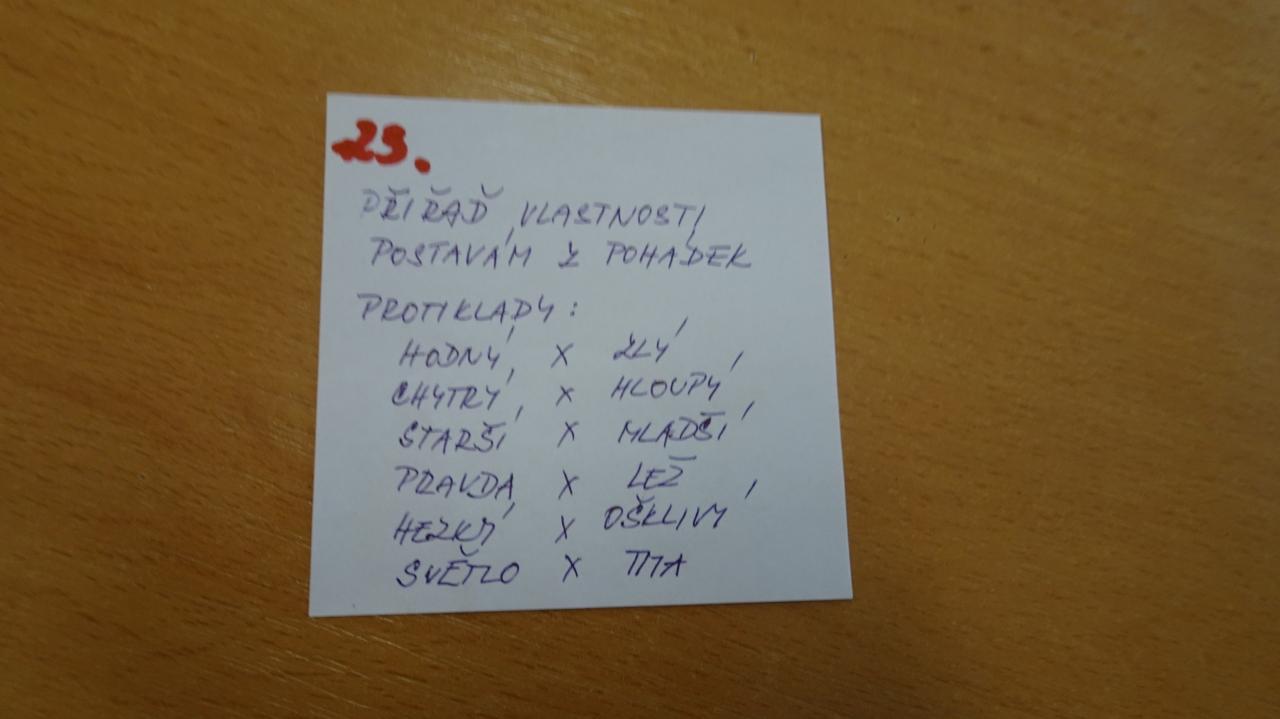 23.
PŘIŘAĎ VLASTNOSTI
POSTAVÁM Z POHÁDEK
PROTIKLADY:
HODNÝ X ZLÝ
CHYTRÝ X HLOUPÝ
STARŠÍ X MLADŠÍ
PRAVDA X LEŽ
HEZKÝ X OŠKLIVÝ
SVĚTLO X TMA